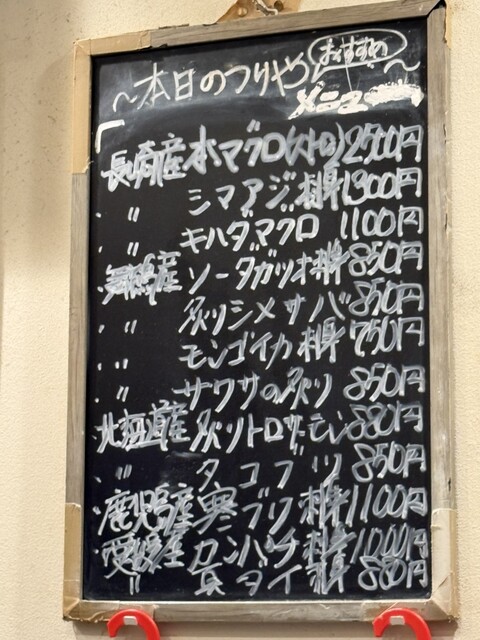 〜本日のつりやしおすすめ〜
メニュー
長崎産 本マグロ(大トロ) 2500円
〃 シマアジ 刺身 1300円
〃 キハダマグロ 1100円
舞鶴産 ソーダガツオ 刺身 850円
〃 炙りシメサバ 850円
〃 モンゴイカ 刺身 750円
〃 サワラの炙り 850円
北海道産 炙りトロサーモン 880円
〃 タコブツ 850円
鹿児島産 寒ブリ 刺身 1100円
愛媛産 カンパチ 刺身 1000円
〃 真ダイ 刺身 880円